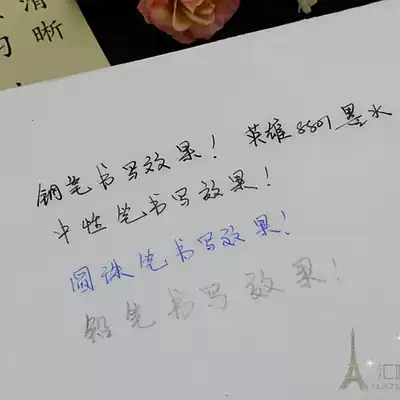 清晰
钢笔书写效果！ 英雄8801墨水
中性笔书写效果！
圆珠笔书写效果！
铅笔书写效果！